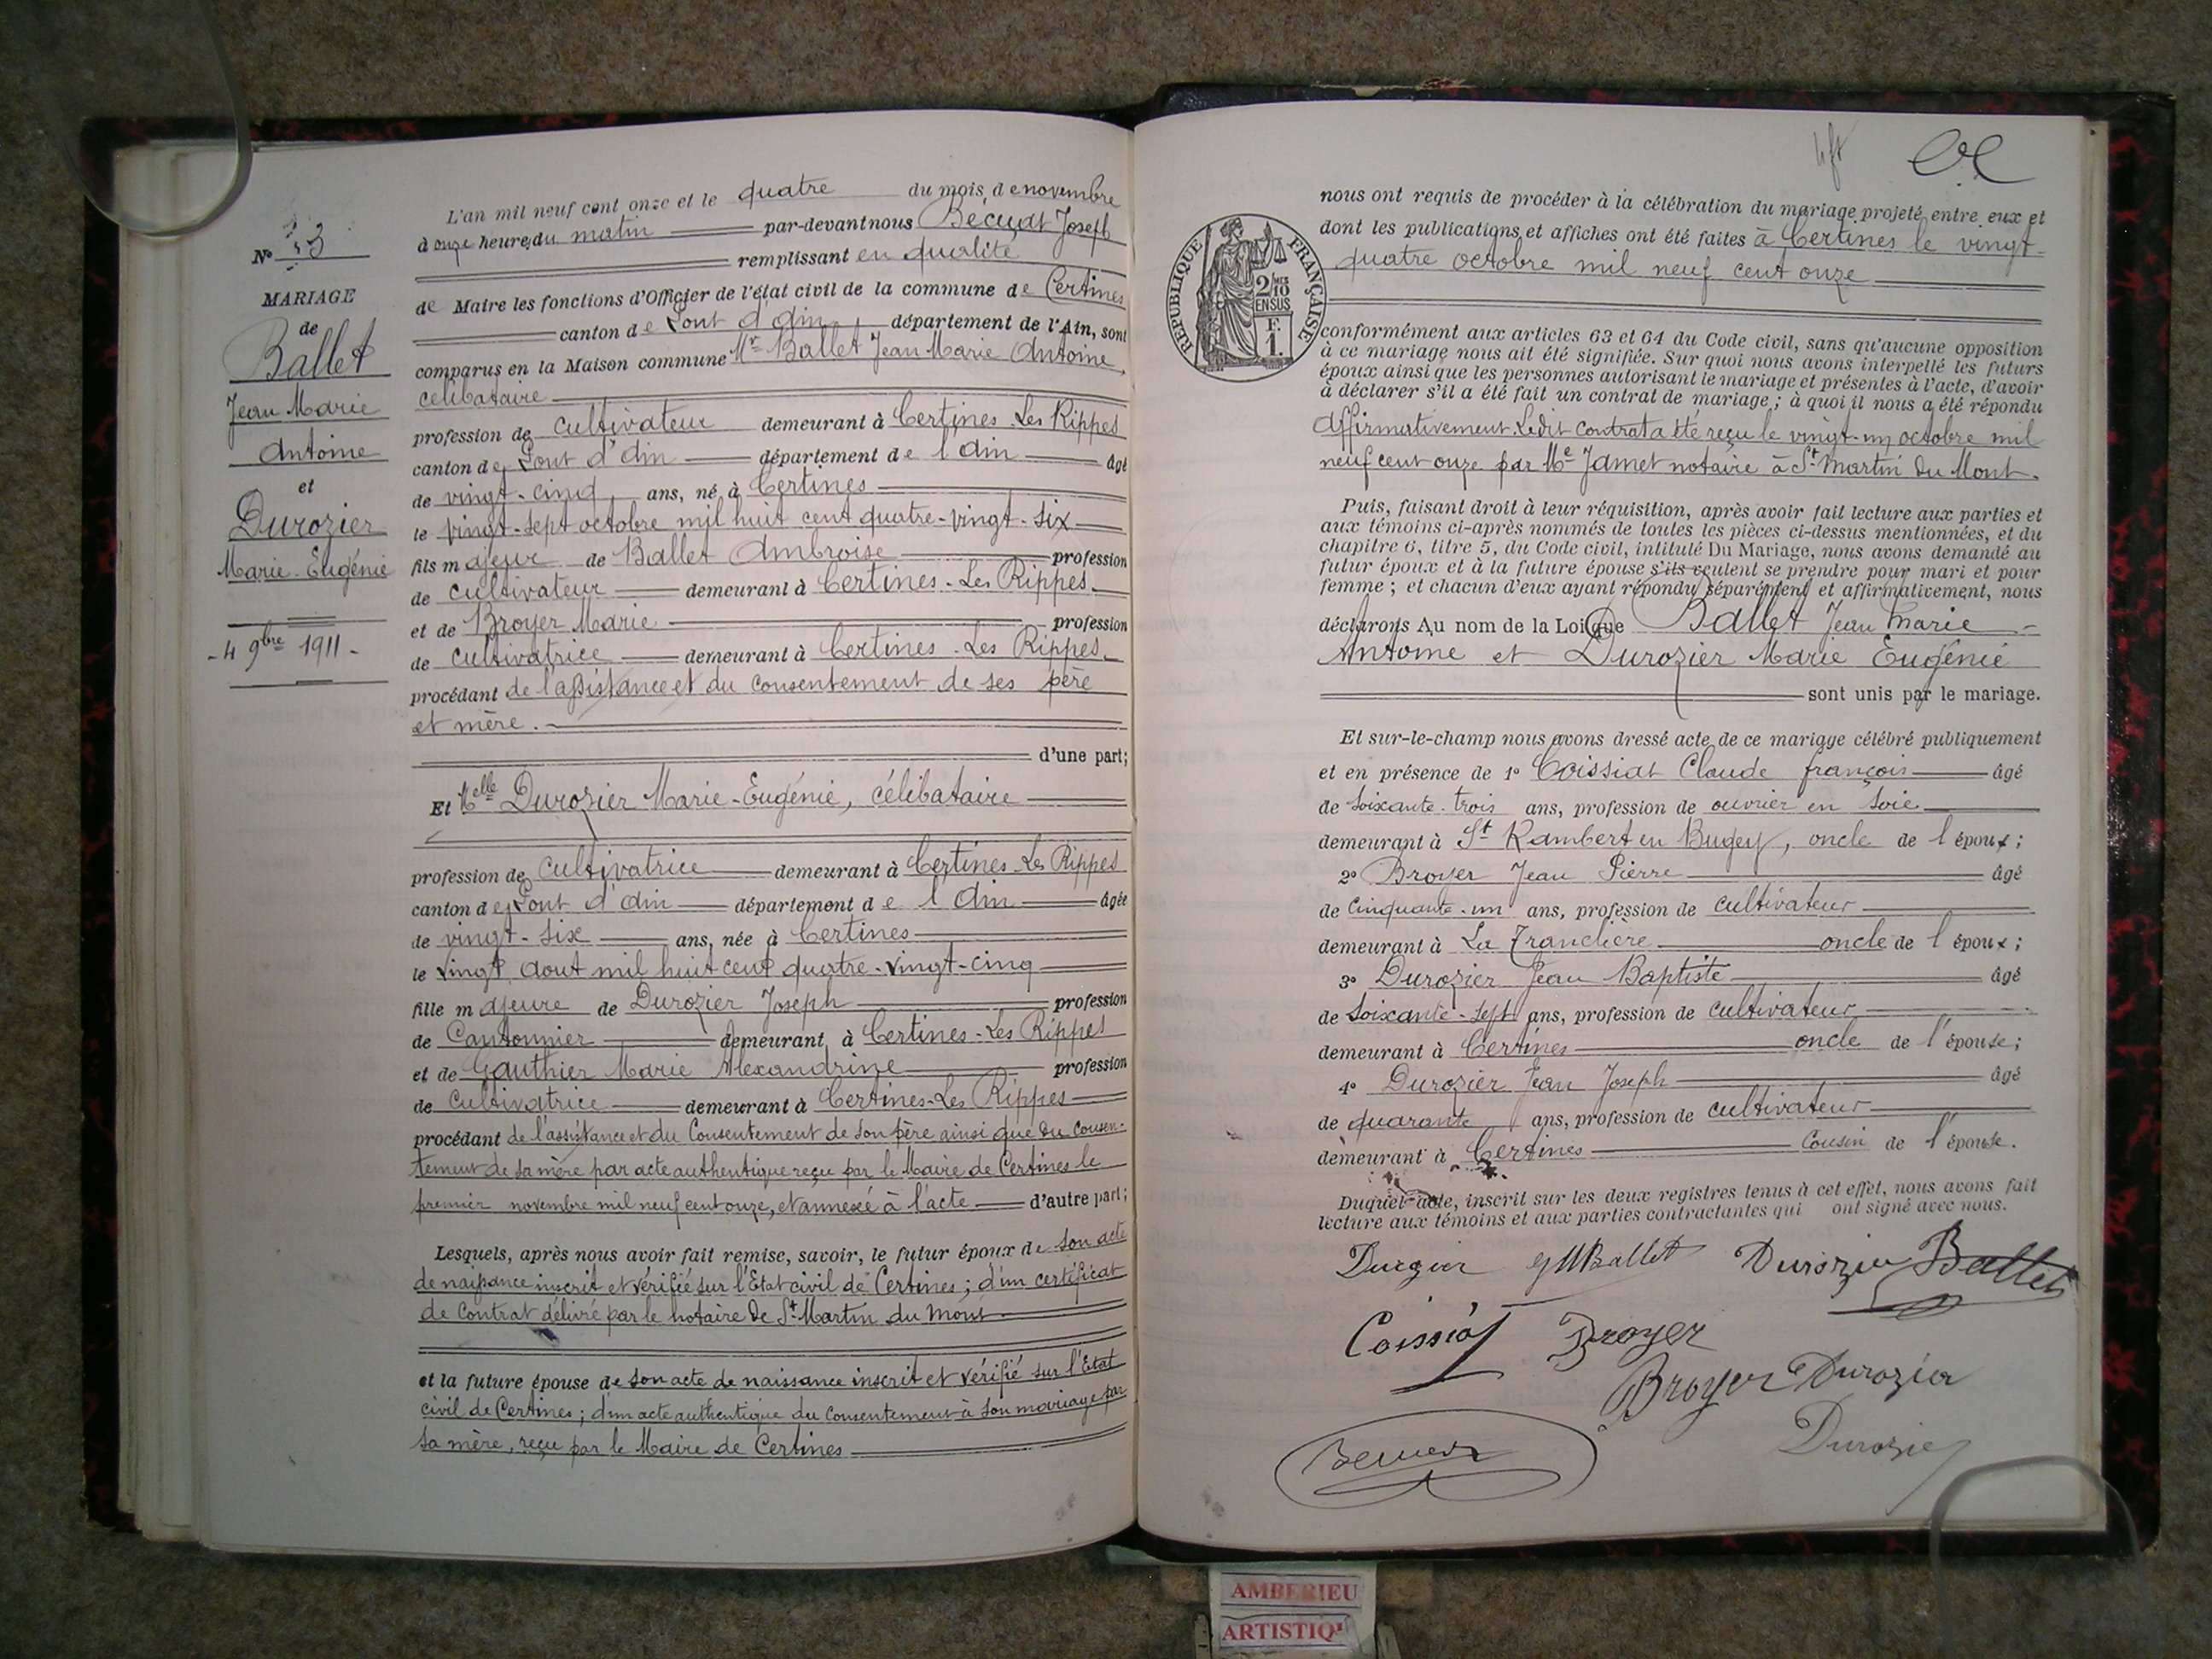 N° 3
MARIAGE
de
Ballet
Jean Marie
Antoine
et
Durozier
Marie-Eugénie
- 4 9bre 1911 -
L'an mil neuf cent onze et le quatre du mois de novembre
à onze heures du matin par-devant nous Becuat Joseph
remplissant en qualité
de Maire les fonctions d'Officier de l'état civil de la commune de Certines
canton de Pont d'Ain, département de l'Ain, sont
comparus en la Maison commune Mr Ballet Jean Marie Antoine,
célibataire
profession de cultivateur demeurant à Certines-Les Rippes
canton de Pont d'Ain département de l'Ain âgé
de vingt-cinq ans, né à Certines
le vingt-sept octobre mil huit cent quatre-vingt-six
fils majeur de Ballet Ambroise profession
de cultivateur demeurant à Certines-Les Rippes
et de Broyer Marie profession
de cultivatrice demeurant à Certines-Les Rippes
procédant de l'assistance et du consentement de ses père
et mère.
d'une part;
Et Melle Durozier Marie-Eugénie, célibataire
profession de cultivatrice demeurant à Certines-Les Rippes
canton de Pont d'Ain département de l'Ain âgée
de vingt-six ans, née à Certines
le vingt aout mil huit cent quatre-vingt-cinq
fille majeure de Durozier Joseph profession
de Cantonnier demeurant à Certines-Les Rippes
et de Gauthier Marie Alexandrine profession
de Cultivatrice demeurant à Certines-Les Rippes
procédant de l'assistance et du Consentement de son père ainsi que du Consen-
tement de sa mère par acte authentique reçu par le Maire de Certines le
premier novembre mil neuf cent onze, et annexé à l'acte d'autre part;
Lesquels, après nous avoir fait remise, savoir, le futur époux de son acte
de naissance inscrit et vérifié sur l'Etat civil de Certines; d'un certificat
de Contrat délivré par le notaire de St Martin du Mont
et la future épouse de son acte de naissance inscrit et vérifié sur l'Etat
civil de Certines; d'un acte authentique du Consentement à son mariage par
sa mère, reçu par le Maire de Certines
RÉPUBLIQUE FRANÇAISE
2/10
EN SUS
F.
1.
nous ont requis de procéder à la célébration du mariage projeté entre eux et
dont les publications et affiches ont été faites à Certines le vingt-
quatre octobre mil neuf cent onze
conformément aux articles 63 et 64 du Code civil, sans qu'aucune opposition
à ce mariage nous ait été signifiée. Sur quoi nous avons interpellé les futurs
époux ainsi que les personnes autorisant le mariage et présentes à l'acte, d'avoir
à déclarer s'il a été fait un contrat de mariage; à quoi il nous a été répondu
Affirmativement. Ledit contrat a été reçu le vingt-un octobre mil
neuf cent onze par Me Jamet notaire à St Martin du Mont.
Puis, faisant droit à leur réquisition, après avoir fait lecture aux parties et
aux témoins ci-après nommés de toutes les pièces ci-dessus mentionnées, et du
chapitre 6, titre 5, du Code civil, intitulé Du Mariage, nous avons demandé au
futur époux et à la future épouse s'ils veulent se prendre pour mari et pour
femme; et chacun d'eux ayant répondu séparément et affirmativement, nous
déclarons Au nom de la Loi Que Ballet Jean Marie
Antoine et Durozier Marie Eugénie
sont unis par le mariage.
Et sur-le-champ nous avons dressé acte de ce mariage célébré publiquement
et en présence de 1° Coissiat Claude françois âgé
de soixante-trois ans, profession de ouvrier en soie
demeurant à St Rambert en Bugey, oncle de l'époux;
2° Broyer Jean Pierre âgé
de cinquante-un ans, profession de cultivateur
demeurant à La Tranclière oncle de l'époux;
3° Durozier Jean Baptiste âgé
de soixante-sept ans, profession de cultivateur
demeurant à Certines oncle de l'épouse;
4° Durozier Jean Joseph âgé
de quarante ans, profession de cultivateur
demeurant à Certines Cousin de l'épouse.
Duquel acte, inscrit sur les deux registres tenus à cet effet, nous avons fait
lecture aux témoins et aux parties contractantes qui ont signé avec nous.
Ballet Durozier Ballet
Coissiat Broyer
Broyer Durozier
Durozier
AMBERIEU
ARTISTIQ